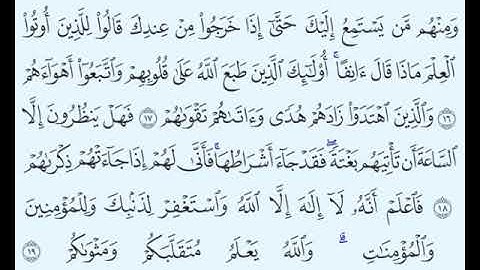 وَمِنْهُم مَّن يَسْتَمِعُ إِلَيْكَ حَتَّىٰٓ إِذَا خَرَجُوا۟ مِنْ عِندِكَ قَالُوا۟ لِلَّذِينَ أُوتُوا۟
ٱلْعِلْمَ مَاذَا قَالَ ءَانِفًا ۚ أُو۟لَٰٓئِكَ ٱلَّذِينَ طَبَعَ ٱللَّهُ عَلَىٰ قُلُوبِهِمْ وَٱتَّبَعُوٓا۟ أَهْوَآءَهُمْ
١٦ وَٱلَّذِينَ ٱهْتَدَوْا۟ زَادَهُمْ هُدًى وَءَاتَىٰهُمْ تَقْوَىٰهُمْ ١٧ فَهَلْ يَنظُرُونَ إِلَّا
ٱلسَّاعَةَ أَن تَأْتِيَهُم بَغْتَةً ۖ فَقَدْ جَآءَ أَشْرَاطُهَا ۚ فَأَنَّىٰ لَهُمْ إِذَا جَآءَتْهُمْ ذِكْرَىٰهُمْ
١٨ فَٱعْلَمْ أَنَّهُۥ لَآ إِلَٰهَ إِلَّا ٱللَّهُ وَٱسْتَغْفِرْ لِذَنۢبِكَ وَلِلْمُؤْمِنِينَ
وَٱلْمُؤْمِنَٰتِ ۗ وَٱللَّهُ يَعْلَمُ مُتَقَلَّبَكُمْ وَمَثْوَىٰكُمْ ١٩